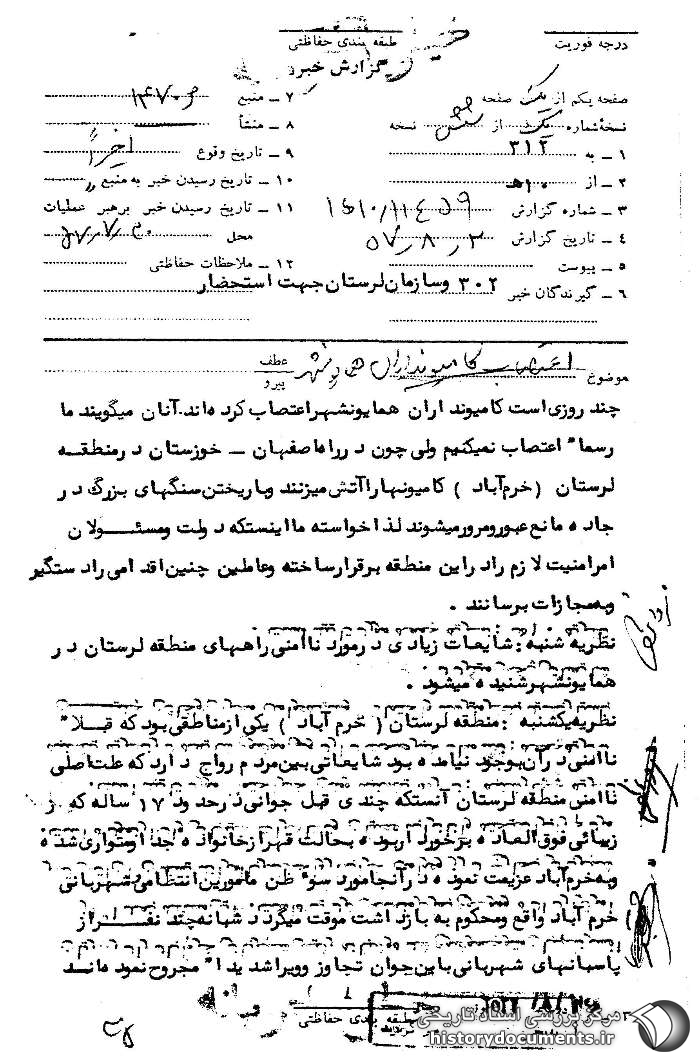 درجه فوریت
طبقه بندی حفاظتی
خیلی
گزارش خبر
صفحه یکم از یک صفحه
نسخه شماره یک از شش نسخه
۱ ـ به ۳۱۲
۲ ـ از ۱۰هـ
۳ ـ شماره گزارش
۴ ـ تاریخ گزارش ۵۷٫۸٫۲
۵ ـ پیوست
۶ ـ گیرندگان خبر ۳۰۲ وسازمان لرستان جهت استحضار
۷ ـ منبع
۸ ـ منشأ
۹ ـ تاریخ وقوع اخیراً
۱۰ ـ تاریخ رسیدن خبر به منبع "
۱۱ ـ تاریخ رسیدن خبر برهبر عملیات
محل ۵۷٫۷٫۳۰
۱۲ ـ ملاحظات حفاظتی
موضوع اعتصاب کامیونداران همایونشهر
عطف
پیرو
چند روزی است کامیونداران همایونشهر اعتصاب کرده اند. آنان میگویند ما
رسما" اعتصاب نمیکنیم ولی چون در راه اصفهان ـ خوزستان در منطقه
لرستان (خرم آباد ) کامیونها را آتش میزنند و با ریختن سنگهای بزرگ در
جاده مانع عبور و مرور میشوند لذا خواسته ما اینستکه دولت و مسئولان
امر امنیت لازم را در این منطقه برقرار ساخته و عاملین چنین اقدامی را دستگیر
و به مجازات برسانند .
نظریه شنبه : شایعات زیادی در مورد ناامنی راههای منطقه لرستان در
همایونشهر شنیده میشود .
نظریه یکشنبه : منطقه لرستان ( خرم آباد ) یکی از مناطقی بود که قبلا"
ناامنی در آن بوجود نیامده بود شایعاتی بین مردم رواج دارد که علت اصلی
ناامنی منطقه لرستان آنستکه چندی قبل جوانی در حدود ۱۷ ساله که از
زیبائی فوق العاده برخوردار بوده بحالت قهر از خانواده جدا و متواری شده
و به خرم آباد عزیمت نموده در آنجا مورد سوء ظن مامورین انتظامی شهربانی
خرم آباد واقع و محکوم به بازداشت موقت میگردد شبانه چند نفر از
پاسبانهای شهربانی باین جوان تجاوز و ویرا شدیدا" مجروح نموده اند
طبقه بندی حفاظتی
مرکز بررسی اسناد تاریخی
historydocuments.ir